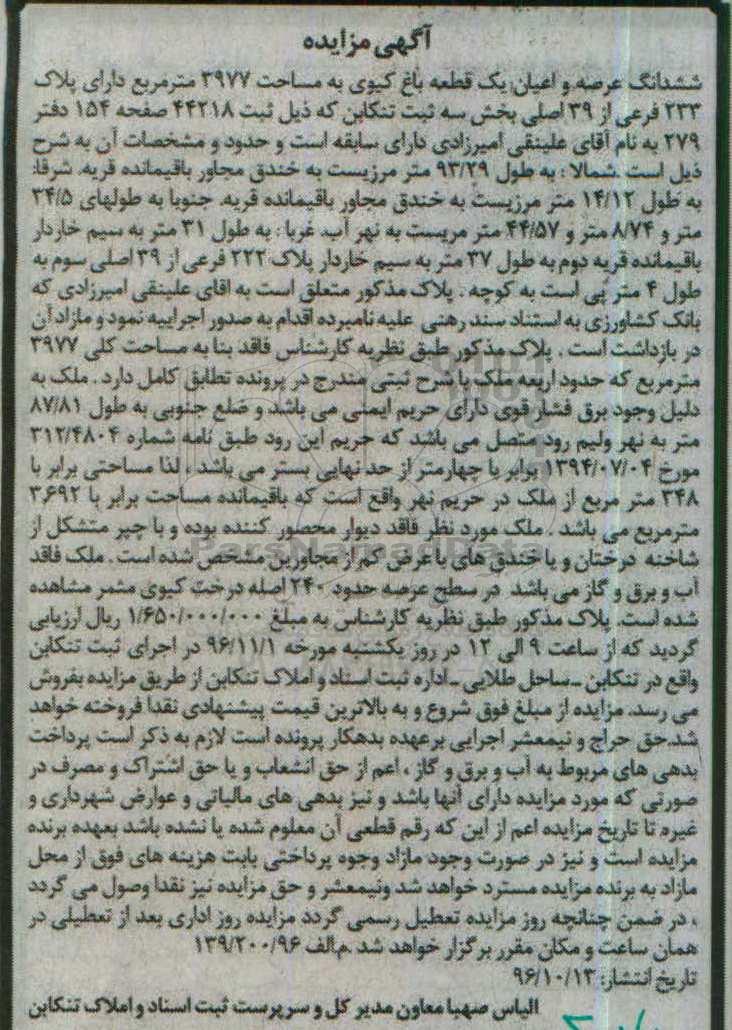 آگهی مزایده
ششدانگ عرصه و اعیان یک قطعه باغ کیوی به مساحت ۳۹۷۷ مترمربع دارای پلاک
۲۳۳ فرعی از ۳۹ اصلی بخش سه ثبت تنکابن که ذیل ثبت ۴۴۲۱۸ صفحه ۱۵۴ دفتر
۲۷۹ به نام آقای علینقی امیرزادی دارای سابقه است و حدود و مشخصات آن به شرح
ذیل است .شمالا : به طول ۹۳/۲۹ متر مرزیست به خندق مجاور باقیمانده قریه. شرقا:
به طول ۱۴/۱۲ متر مرزیست به خندق مجاور باقیمانده قریه. جنوبا به طولهای ۳۴/۵
متر و ۸/۷۴ متر و ۴۴/۵۷ متر مریست به نهر آب. غربا : به طول ۳۱ متر به سیم خاردار
باقیمانده قریه دوم به طول ۳۷ متر به سیم خاردار پلاک ۲۲۲ فرعی از ۳۹ اصلی سوم به
طول ۴ متر پی است به کوچه . پلاک مذکور متعلق است به اقای علینقی امیرزادی که
بانک کشاورزی به استناد سند رهنی علیه نامبرده اقدام به صدور اجراییه نمود و مازاد آن
در بازداشت است . پلاک مذکور طبق نظریه کارشناس فاقد بنا به مساحت کلی ۳۹۷۷
مترمربع که حدود اربعه ملک با شرح ثبتی مندرج در پرونده تطابق کامل دارد . ملک به
دلیل وجود برق فشار قوی دارای حریم ایمنی می باشد و ضلع جنوبی به طول ۸۷/۸۱
متر به نهر ولیم رود متصل می باشد که حریم این رود طبق نامه شماره ۳۱۲/۴۸۰۴
مورخ ۱۳۹۴/۰۷/۰۴ برابر با چهارمتر از حد نهایی بستر می باشد ، لذا مساحتی برابر با
۳۴۸ متر مربع از ملک در حریم نهر واقع است که باقیمانده مساحت برابر با ۳,۶۹۲
مترمربع می باشد . ملک مورد نظر فاقد دیوار محصور کننده بوده و با چپر متشکل از
شاخنه درختان و یا خندق های با عرض کم از مجاورین مشخص شده است . ملک فاقد
آب و برق و گاز می باشد در سطح عرصه حدود ۲۴۰ اصله درخت کیوی مثمر مشاهده
شده است. پلاک مذکور طبق نظریه کارشناس به مبلغ ۱/۶۵۰/۰۰۰/۰۰۰ ریال ارزیابی
گردید که از ساعت ۹ الی ۱۲ در روز یکشنبه مورخه ۹۶/۱۱/۱ در اجرای ثبت تنکابن
واقع در تنکابن ـساحل طلایی ـ اداره ثبت اسناد و املاک تنکابن از طریق مزایده بفروش
می رسد. مزایده از مبلغ فوق شروع و به بالاترین قیمت پیشنهادی نقدا فروخته خواهد
شد.حق حراج و نیمعشر اجرایی برعهده بدهکار پرونده است لازم به ذکر است پرداخت
بدهی های مربوط به آب و برق و گاز ، اعم از حق انشعاب و یا حق اشتراک و مصرف در
صورتی که مورد مزایده دارای آنها باشد و نیز بدهی های مالیاتی و عوارض شهرداری و
غیره تا تاریخ مزایده اعم از این که رقم قطعی آن معلوم شده یا نشده باشد بعهده برنده
مزایده است و نیز در صورت وجود مازاد وجوه پرداختی بابت هزینه های فوق از محل
مازاد به برنده مزایده مسترد خواهد شد ونیمعشر و حق مزایده نیز نقدا وصول می گردد
، در ضمن چنانچه روز مزایده تعطیل رسمی گردد مزایده روز اداری بعد از تعطیلی در
همان ساعت و مکان مقرر برگزار خواهد شد .م.الف ۱۳۹/۲۰۰/۹۶
تاریخ انتشار: ۹۶/۱۰/۱۳
الیاس صهبا معاون مدیر کل و سرپرست ثبت اسناد و املاک تنکابن
ParsNamadData